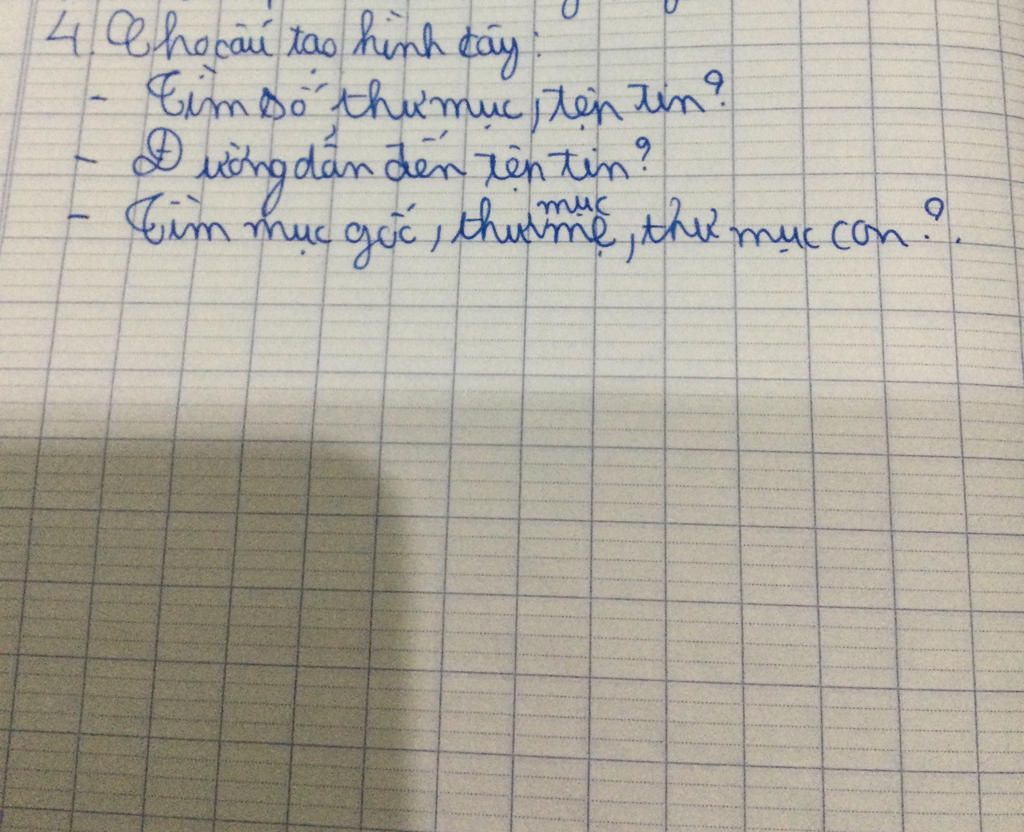 4. Cho cấu tạo hình cây:
- Tìm số thư mục, tệp tin?
- Đường dẫn đến tệp tin?
- Tìm mục gốc, thư mục mẹ, thư mục con?.